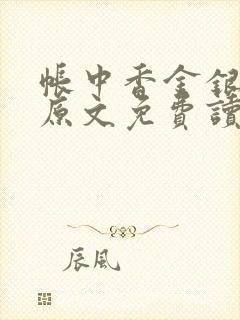 帳中香金銀
原文免費讀
辰風